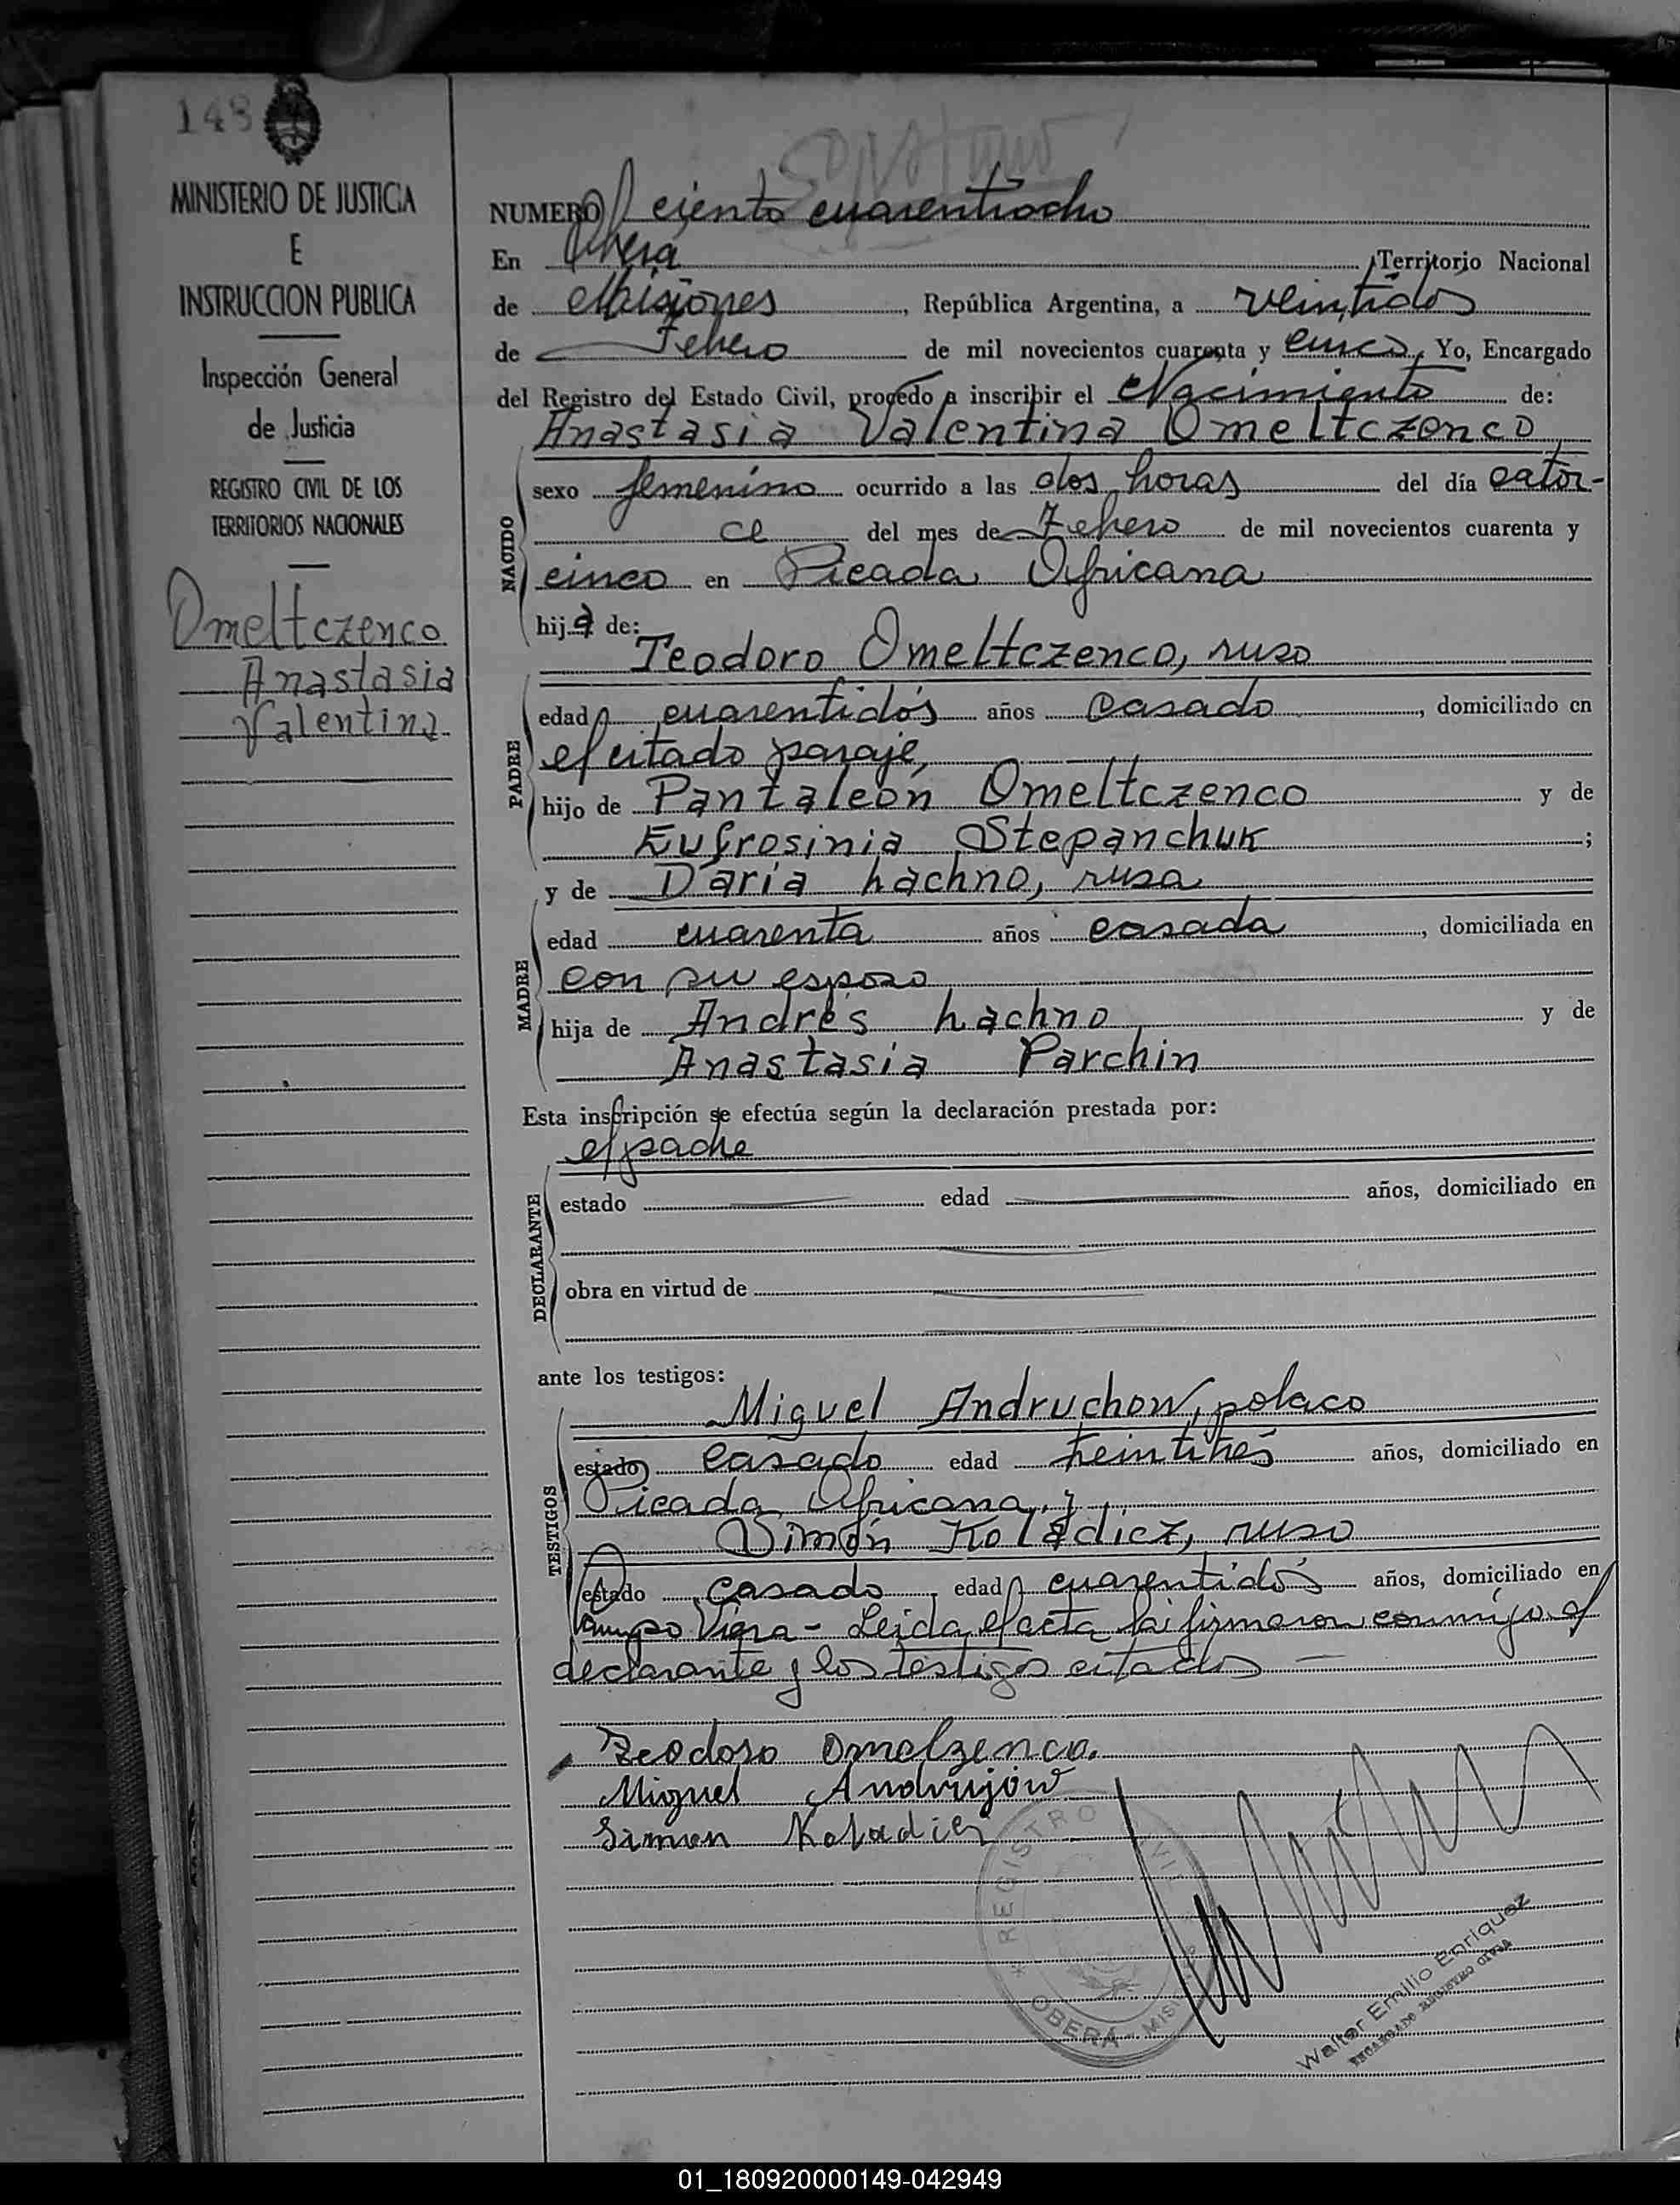 148
MINISTERIO DE JUSTICIA
E
INSTRUCCION PUBLICA
Inspección General
de Justicia
REGISTRO CIVIL DE LOS
TERRITORIOS NACIONALES
Omeltczenco
Anastasia
Valentina
NUMERO ciento cuarentiocho
En Oberá, Territorio Nacional
de Misiones, República Argentina, a veintidos
de Febrero de mil novecientos cuarenta y cinco, Yo, Encargado
del Registro del Estado Civil, procedo a inscribir el Nacimiento de:
Anastasia Valentina Omeltczenco
NACIDO
sexo femenino ocurrido a las dos horas del día cator-
ce del mes de Febrero de mil novecientos cuarenta y
cinco en Picada Africana
hija de:
Teodoro Omeltczenco, ruso
PADRE
edad cuarentidós años casado, domiciliado en
el citado paraje,
hijo de Pantaleón Omeltczenco y de
Eufrosinia Stepanchuk;
y de Daria hachno, rusa
MADRE
edad cuarenta años casada, domiciliada en
con su esposo
hija de Andrés hachno y de
Anastasia Parchin
Esta inscripción se efectúa según la declaración prestada por:
el padre
DECLARANTE
estado edad años, domiciliado en
obra en virtud de
ante los testigos:
Miguel Andruchow, polaco
TESTIGOS
estado casado edad treintitrés años, domiciliado en
Picada Africana, y
Simón Koladicz, ruso
estado casado, edad cuarentidós años, domiciliado en
Campo Viera - Leida el acta la firmaron conmigo el
declarante y los testigos citados —
Teodoro Omelzenco.
Miguel Andrujow
Simon Koladicz
REGISTRO CIVIL
OBERÁ - MISIONES
Walter Emilio Enriquez
ENCARGADO REGISTRO CIVIL
01_180920000149-042949